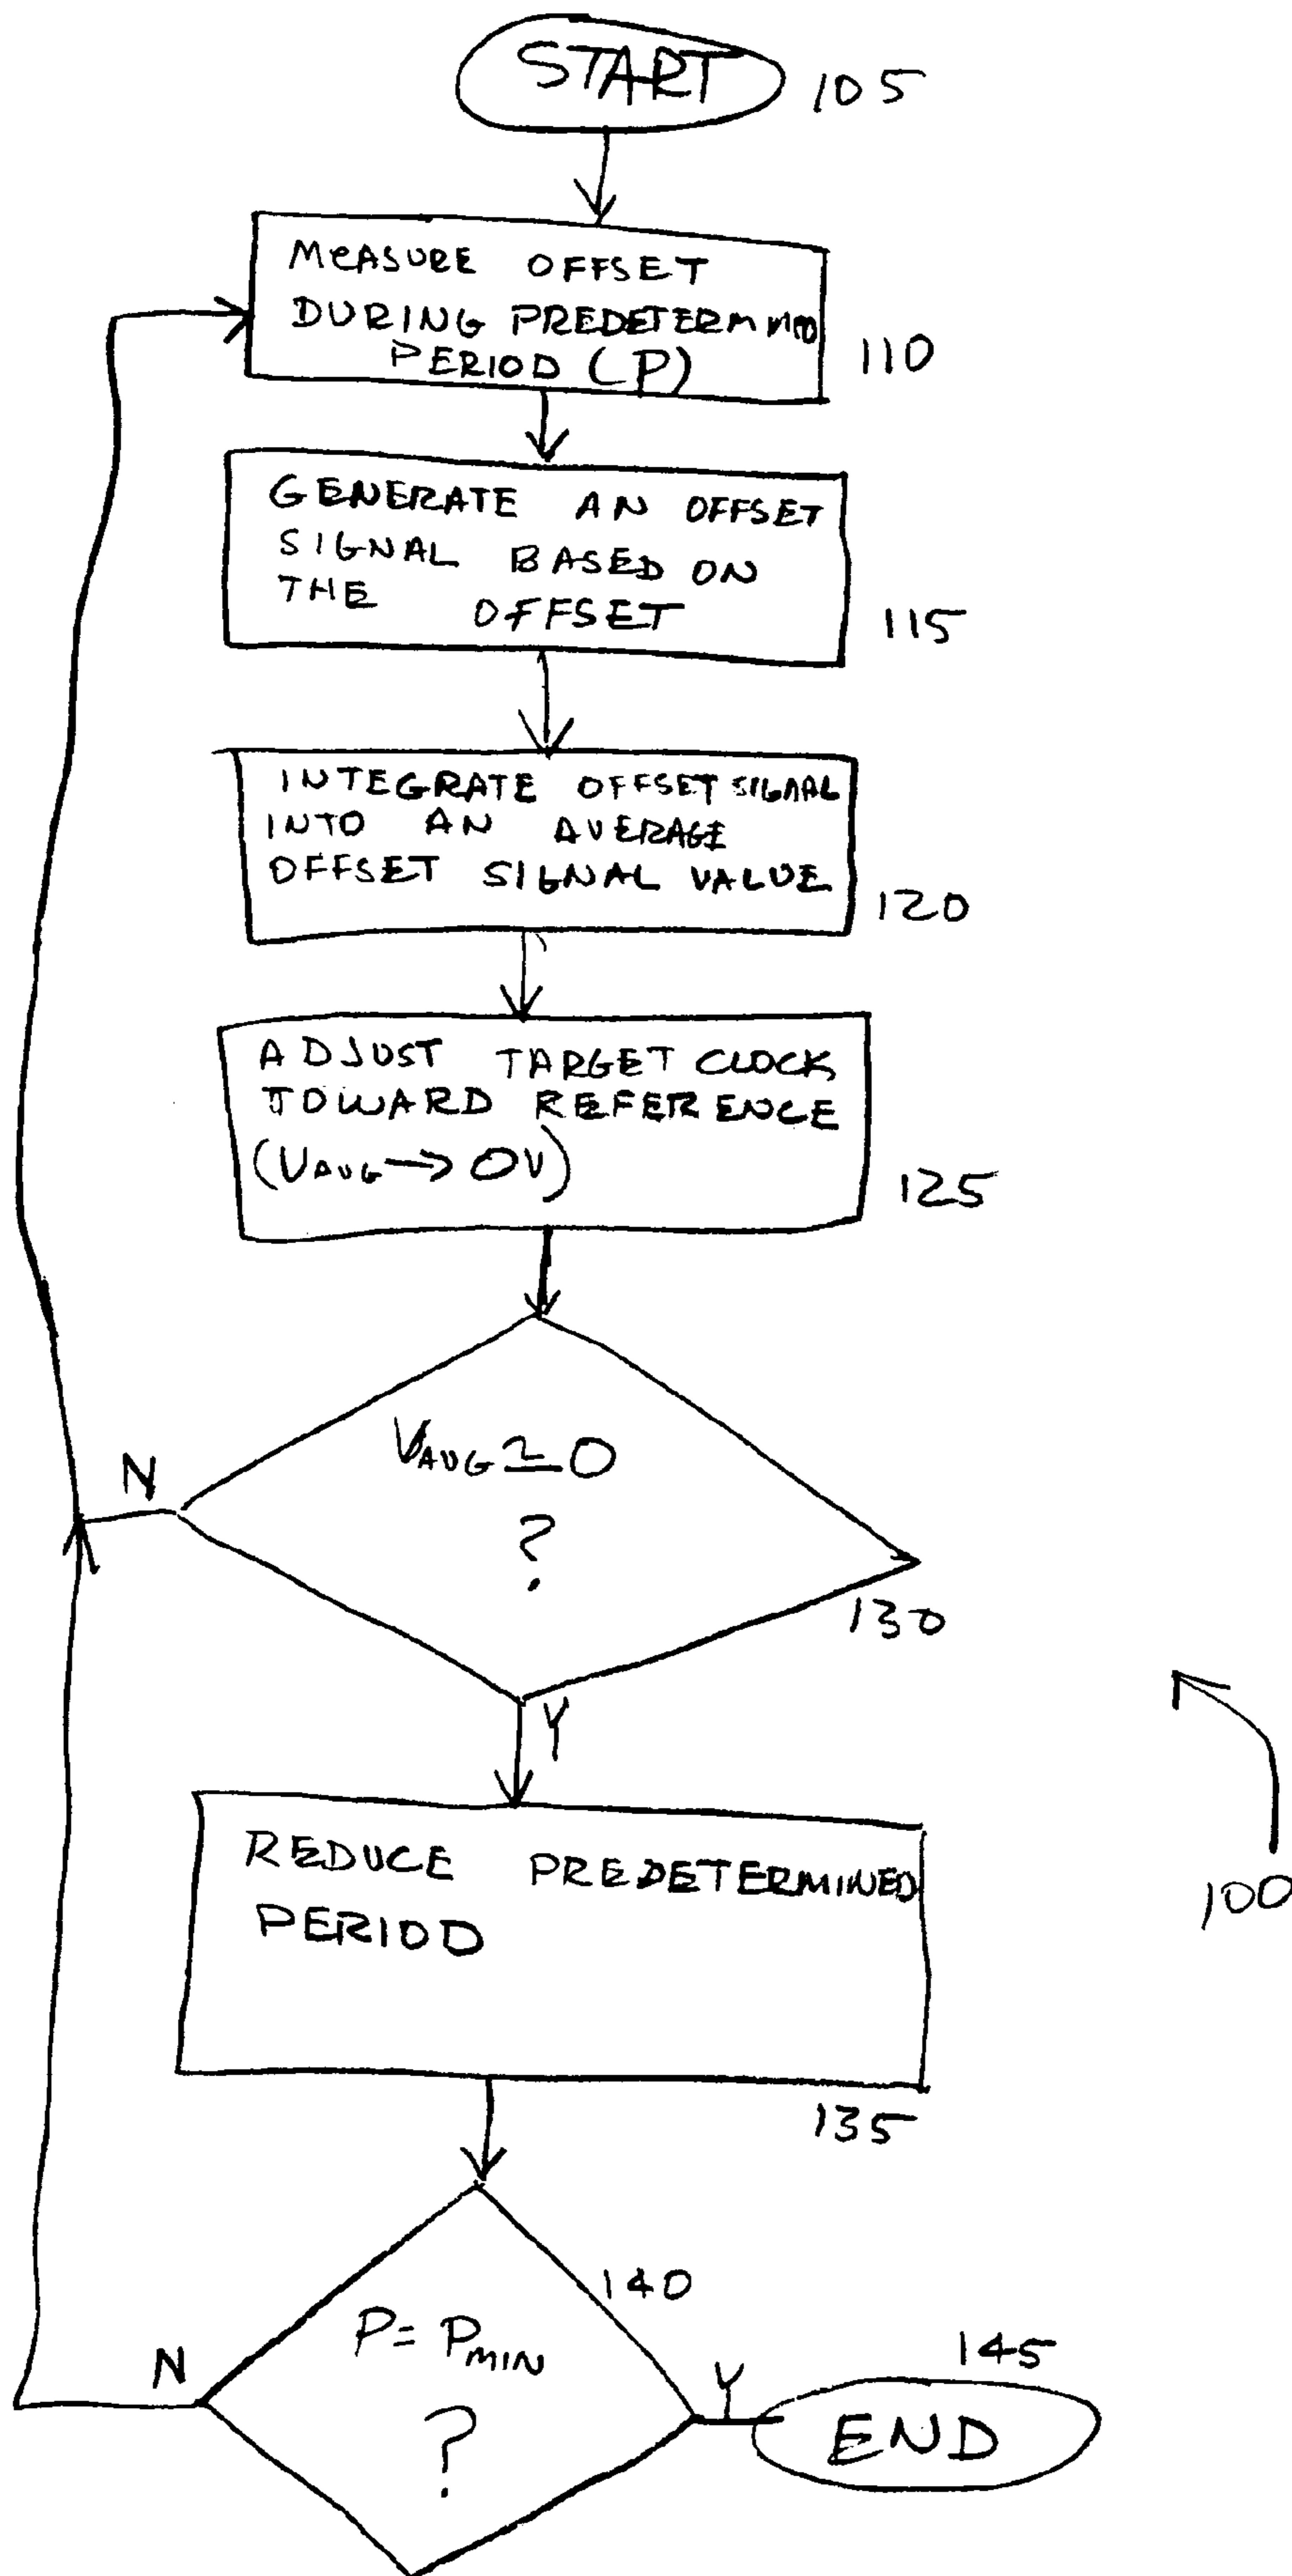 START 105
MEASURE OFFSET
DURING PREDETERMINED
PERIOD (P)
110
GENERATE AN OFFSET
SIGNAL BASED ON
THE OFFSET
115
INTEGRATE OFFSET SIGNAL
INTO AN AVERAGE
OFFSET SIGNAL VALUE
120
ADJUST TARGET CLOCK
TOWARD REFERENCE
(VAVG → 0V)
125
N
VAVG ≃ 0
?
130
Y
REDUCE PREDETERMINED
PERIOD
100
135
140
P = PMIN
?
N
Y
145
END